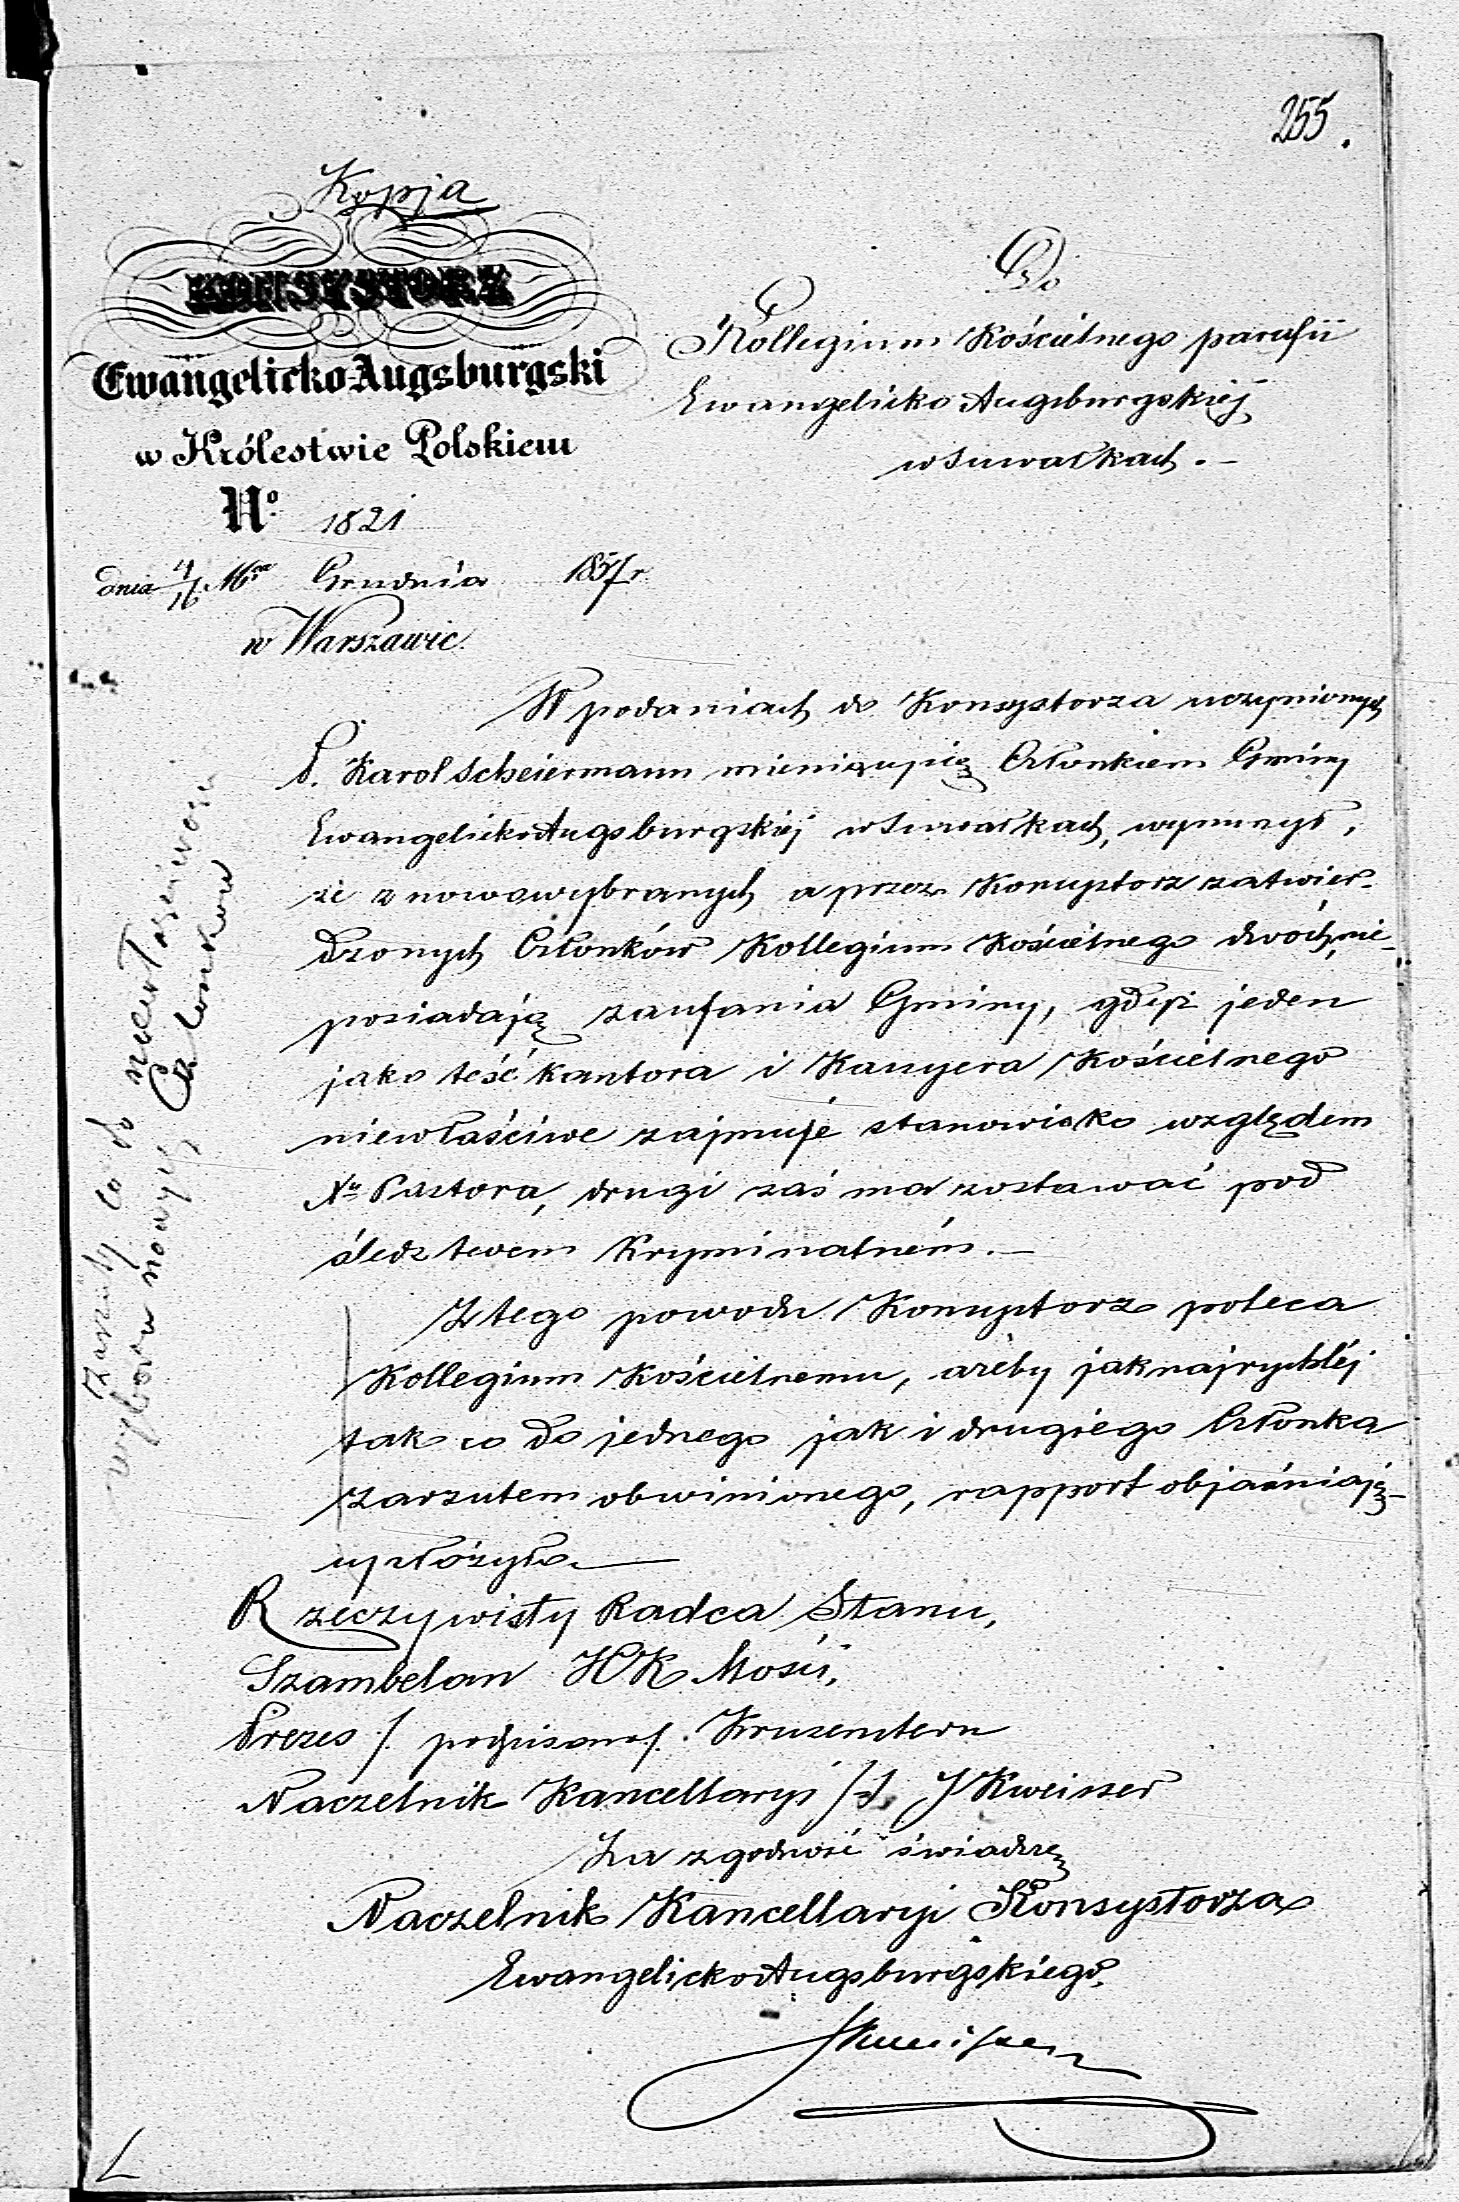 255.
Kopja
KONSYSTORZ
Ewangelicko-Augsburgski
w Królestwie Polskiem
No 1821
dnia 4/16 Mca Grudnia 1857 r.
w Warszawie.
Do
Kollegium Kościelnego parafii
Ewangelicko Augsburgskiéj
w Suwałkach. —
W podaniach do Konsystorza uczynionych
P. Karol Scheiermann mieniąc się Członkiem Gminy
Ewangelicko Augsburgskiéj w Suwałkach,
że z nowowybranych a przez Konsystorz zatwier-
dzonych Członków Kollegium Kościelnego dwóch, nie-
posiadają zaufania Gminy, gdyż jeden
jako teść kantora i Kassyera Kościelnego
niewłaściwe zajmuje stanowisko względem
Pastora, drugi zaś ma zostawać pod
śledztwem Kryminalném. —
Z tego powodu Konsystorz poleca
Kollegium Kościelnemu, ażeby jaknajrychléj
tak co do jednego jak i drugiego Członka
zarzutem obwinionego, rapport objaśniają-
cy złożyło. —
Rzeczywisty Radca Stanu,
Szambelan JJK Mości,
Prezes /. podpisano /. Kruzenstern
Naczelnik Kancellaryi /-/ J Kweisser
Za zgodność świadczę
Naczelnik Kancellaryi Konsystorza
Ewangelicko Augsburgskiego.
Zarzuty co do niewłaściwości
wyboru nowych Członków